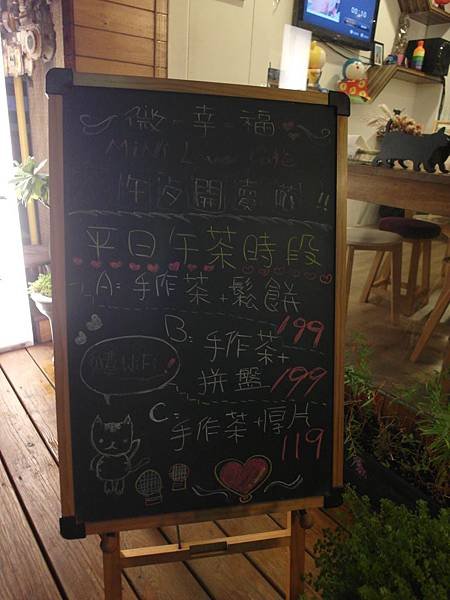 微-幸-福
Mini Love
午夕開賣啦!!
平日午茶時段
A:手作茶+鬆餅
199
B:手作茶+
拼盤 199
WiFi!
C:手作茶+厚片
119